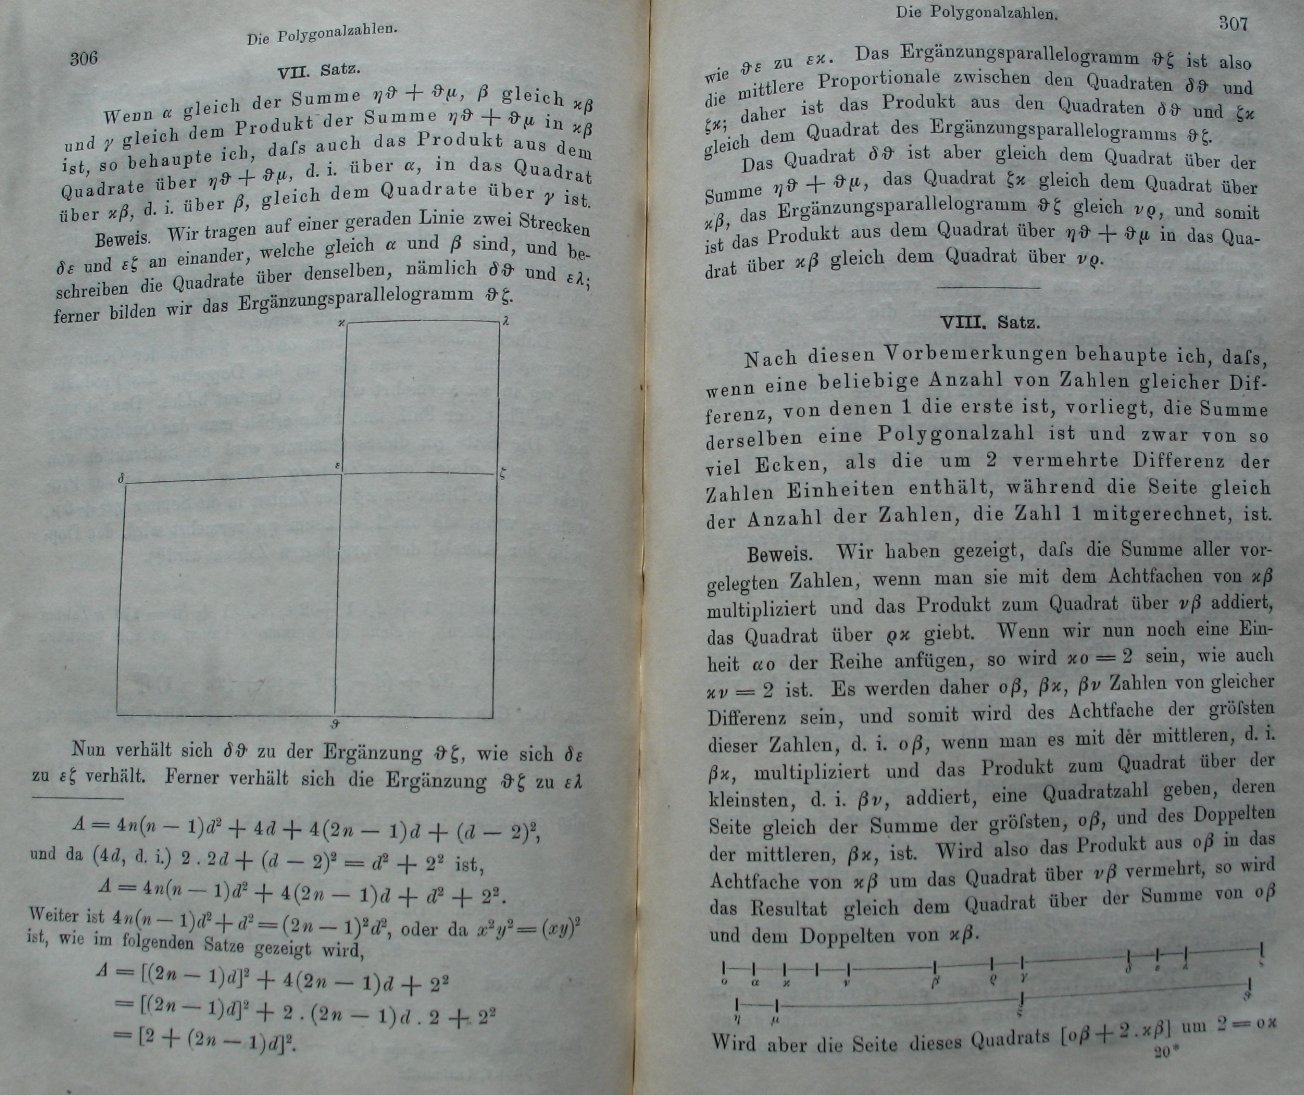 306
Die Polygonalzahlen.
VII. Satz.
Wenn α gleich der Summe ηϑ + ϑμ, β gleich ϰβ
und γ gleich dem Produkt der Summe ηϑ + ϑμ in ϰβ
ist, so behaupte ich, daſs auch das Produkt aus dem
Quadrate über ηϑ + ϑμ, d. i. über α, in das Quadrat
über ϰβ, d. i. über β, gleich dem Quadrate über γ ist.
Beweis. Wir tragen auf einer geraden Linie zwei Strecken
δε und εζ an einander, welche gleich α und β sind, und be-
schreiben die Quadrate über denselben, nämlich δϑ und ελ;
ferner bilden wir das Ergänzungsparallelogramm ϑζ.
ϰ λ
δ ε ζ
ϑ
Nun verhält sich δϑ zu der Ergänzung ϑζ, wie sich δε
zu εζ verhält. Ferner verhält sich die Ergänzung ϑζ zu ελ
A = 4n(n − 1)d² + 4d + 4(2n − 1)d + (d − 2)²,
und da (4d, d. i.) 2 . 2d + (d − 2)² = d² + 2² ist,
A = 4n(n − 1)d² + 4(2n − 1)d + d² + 2².
Weiter ist 4n(n − 1)d² + d² = (2n − 1)²d², oder da x²y² = (xy)²
ist, wie im folgenden Satze gezeigt wird,
A = [(2n − 1)d]² + 4(2n − 1)d + 2²
= [(2n − 1)d]² + 2 . (2n − 1)d . 2 + 2²
= [2 + (2n − 1)d]².
Die Polygonalzahlen.
307
wie ϑε zu εϰ. Das Ergänzungsparallelogramm ϑζ ist also
die mittlere Proportionale zwischen den Quadraten δϑ und
ζϰ; daher ist das Produkt aus den Quadraten δϑ und ζϰ
gleich dem Quadrat des Ergänzungsparallelogramms ϑζ.
Das Quadrat δϑ ist aber gleich dem Quadrat über der
Summe ηϑ + ϑμ, das Quadrat ζϰ gleich dem Quadrat über
ϰβ, das Ergänzungsparallelogramm ϑζ gleich νϱ, und somit
ist das Produkt aus dem Quadrat über ηϑ + ϑμ in das Qua-
drat über ϰβ gleich dem Quadrat über νϱ.
VIII. Satz.
Nach diesen Vorbemerkungen behaupte ich, daſs,
wenn eine beliebige Anzahl von Zahlen gleicher Dif-
ferenz, von denen 1 die erste ist, vorliegt, die Summe
derselben eine Polygonalzahl ist und zwar von so
viel Ecken, als die um 2 vermehrte Differenz der
Zahlen Einheiten enthält, während die Seite gleich
der Anzahl der Zahlen, die Zahl 1 mitgerechnet, ist.
Beweis. Wir haben gezeigt, daſs die Summe aller vor-
gelegten Zahlen, wenn man sie mit dem Achtfachen von ϰβ
multipliziert und das Produkt zum Quadrat über νβ addiert,
das Quadrat über ϱϰ giebt. Wenn wir nun noch eine Ein-
heit αο der Reihe anfügen, so wird ϰο = 2 sein, wie auch
ϰν = 2 ist. Es werden daher οβ, βϰ, βν Zahlen von gleicher
Differenz sein, und somit wird des Achtfache der gröſsten
dieser Zahlen, d. i. οβ, wenn man es mit der mittleren, d. i.
βϰ, multipliziert und das Produkt zum Quadrat über der
kleinsten, d. i. βν, addiert, eine Quadratzahl geben, deren
Seite gleich der Summe der gröſsten, οβ, und des Doppelten
der mittleren, βϰ, ist. Wird also das Produkt aus οβ in das
Achtfache von ϰβ um das Quadrat über νβ vermehrt, so wird
das Resultat gleich dem Quadrat über der Summe von οβ
und dem Doppelten von ϰβ.
ο α ϰ ν β ϱ γ δ ε λ
η μ ϑ
Wird aber die Seite dieses Quadrats [οβ + 2 . ϰβ] um 2 = οϰ
20*